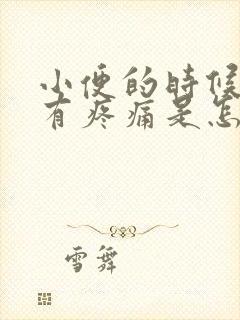 小便的时候
有疼痛是怎
雪舞